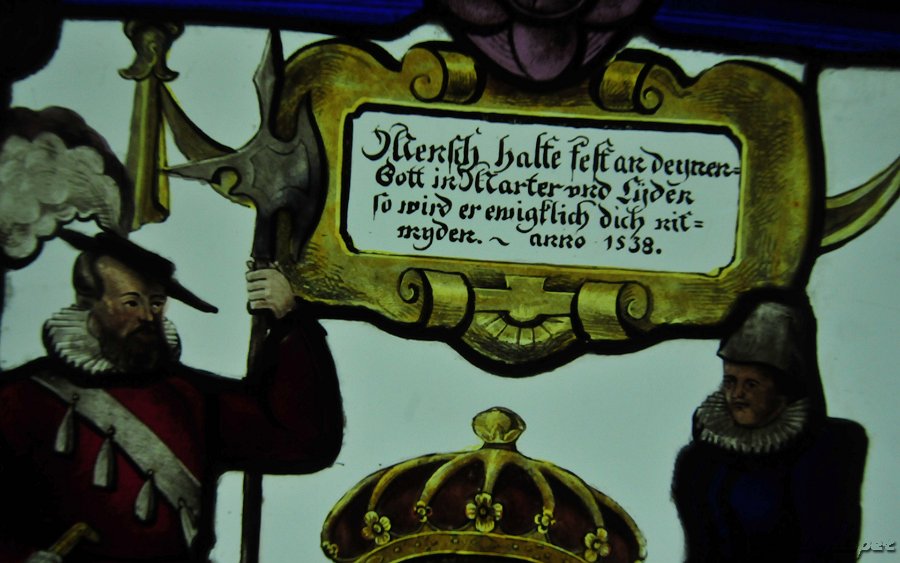 Mensch halte fest an deynen=
Gott in Marter vnd Lyden
so wird er ewigklich dich nit=
myden. ~ anno 1538.